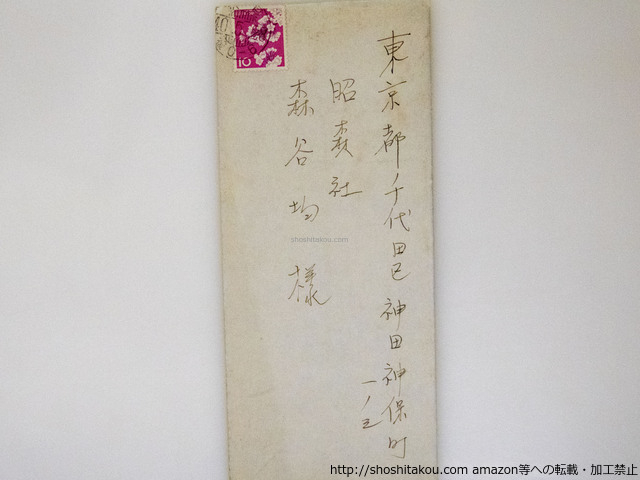 東京都千代田区神田神保町
一ノ三
昭森社
森谷均様
10
shoshitakou.com
http://shoshitakou.com amazon等への転載・加工禁止